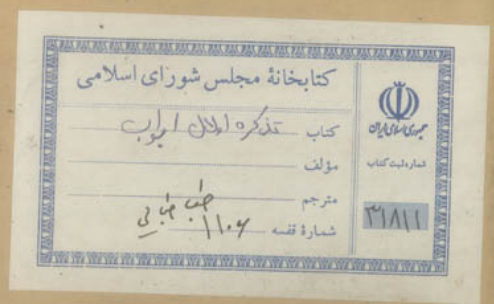 کتابخانهٔ مجلس شورای اسلامی
کتاب تذکره اولی
مؤلف
مترجم
شمارهٔ قفسه ۱۱۰۶
جمهوری اسلامی ایران
شماره ثبت کتاب
۳۱۸۱۱